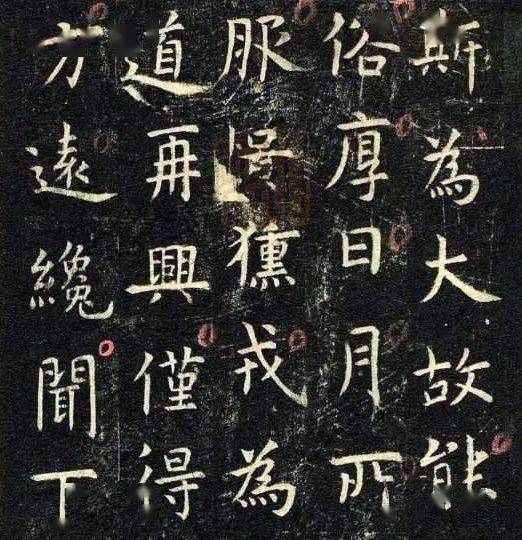 斯為大故能
俗厚日月所
服号獯戎為
道再興僅得
方遠纔聞下